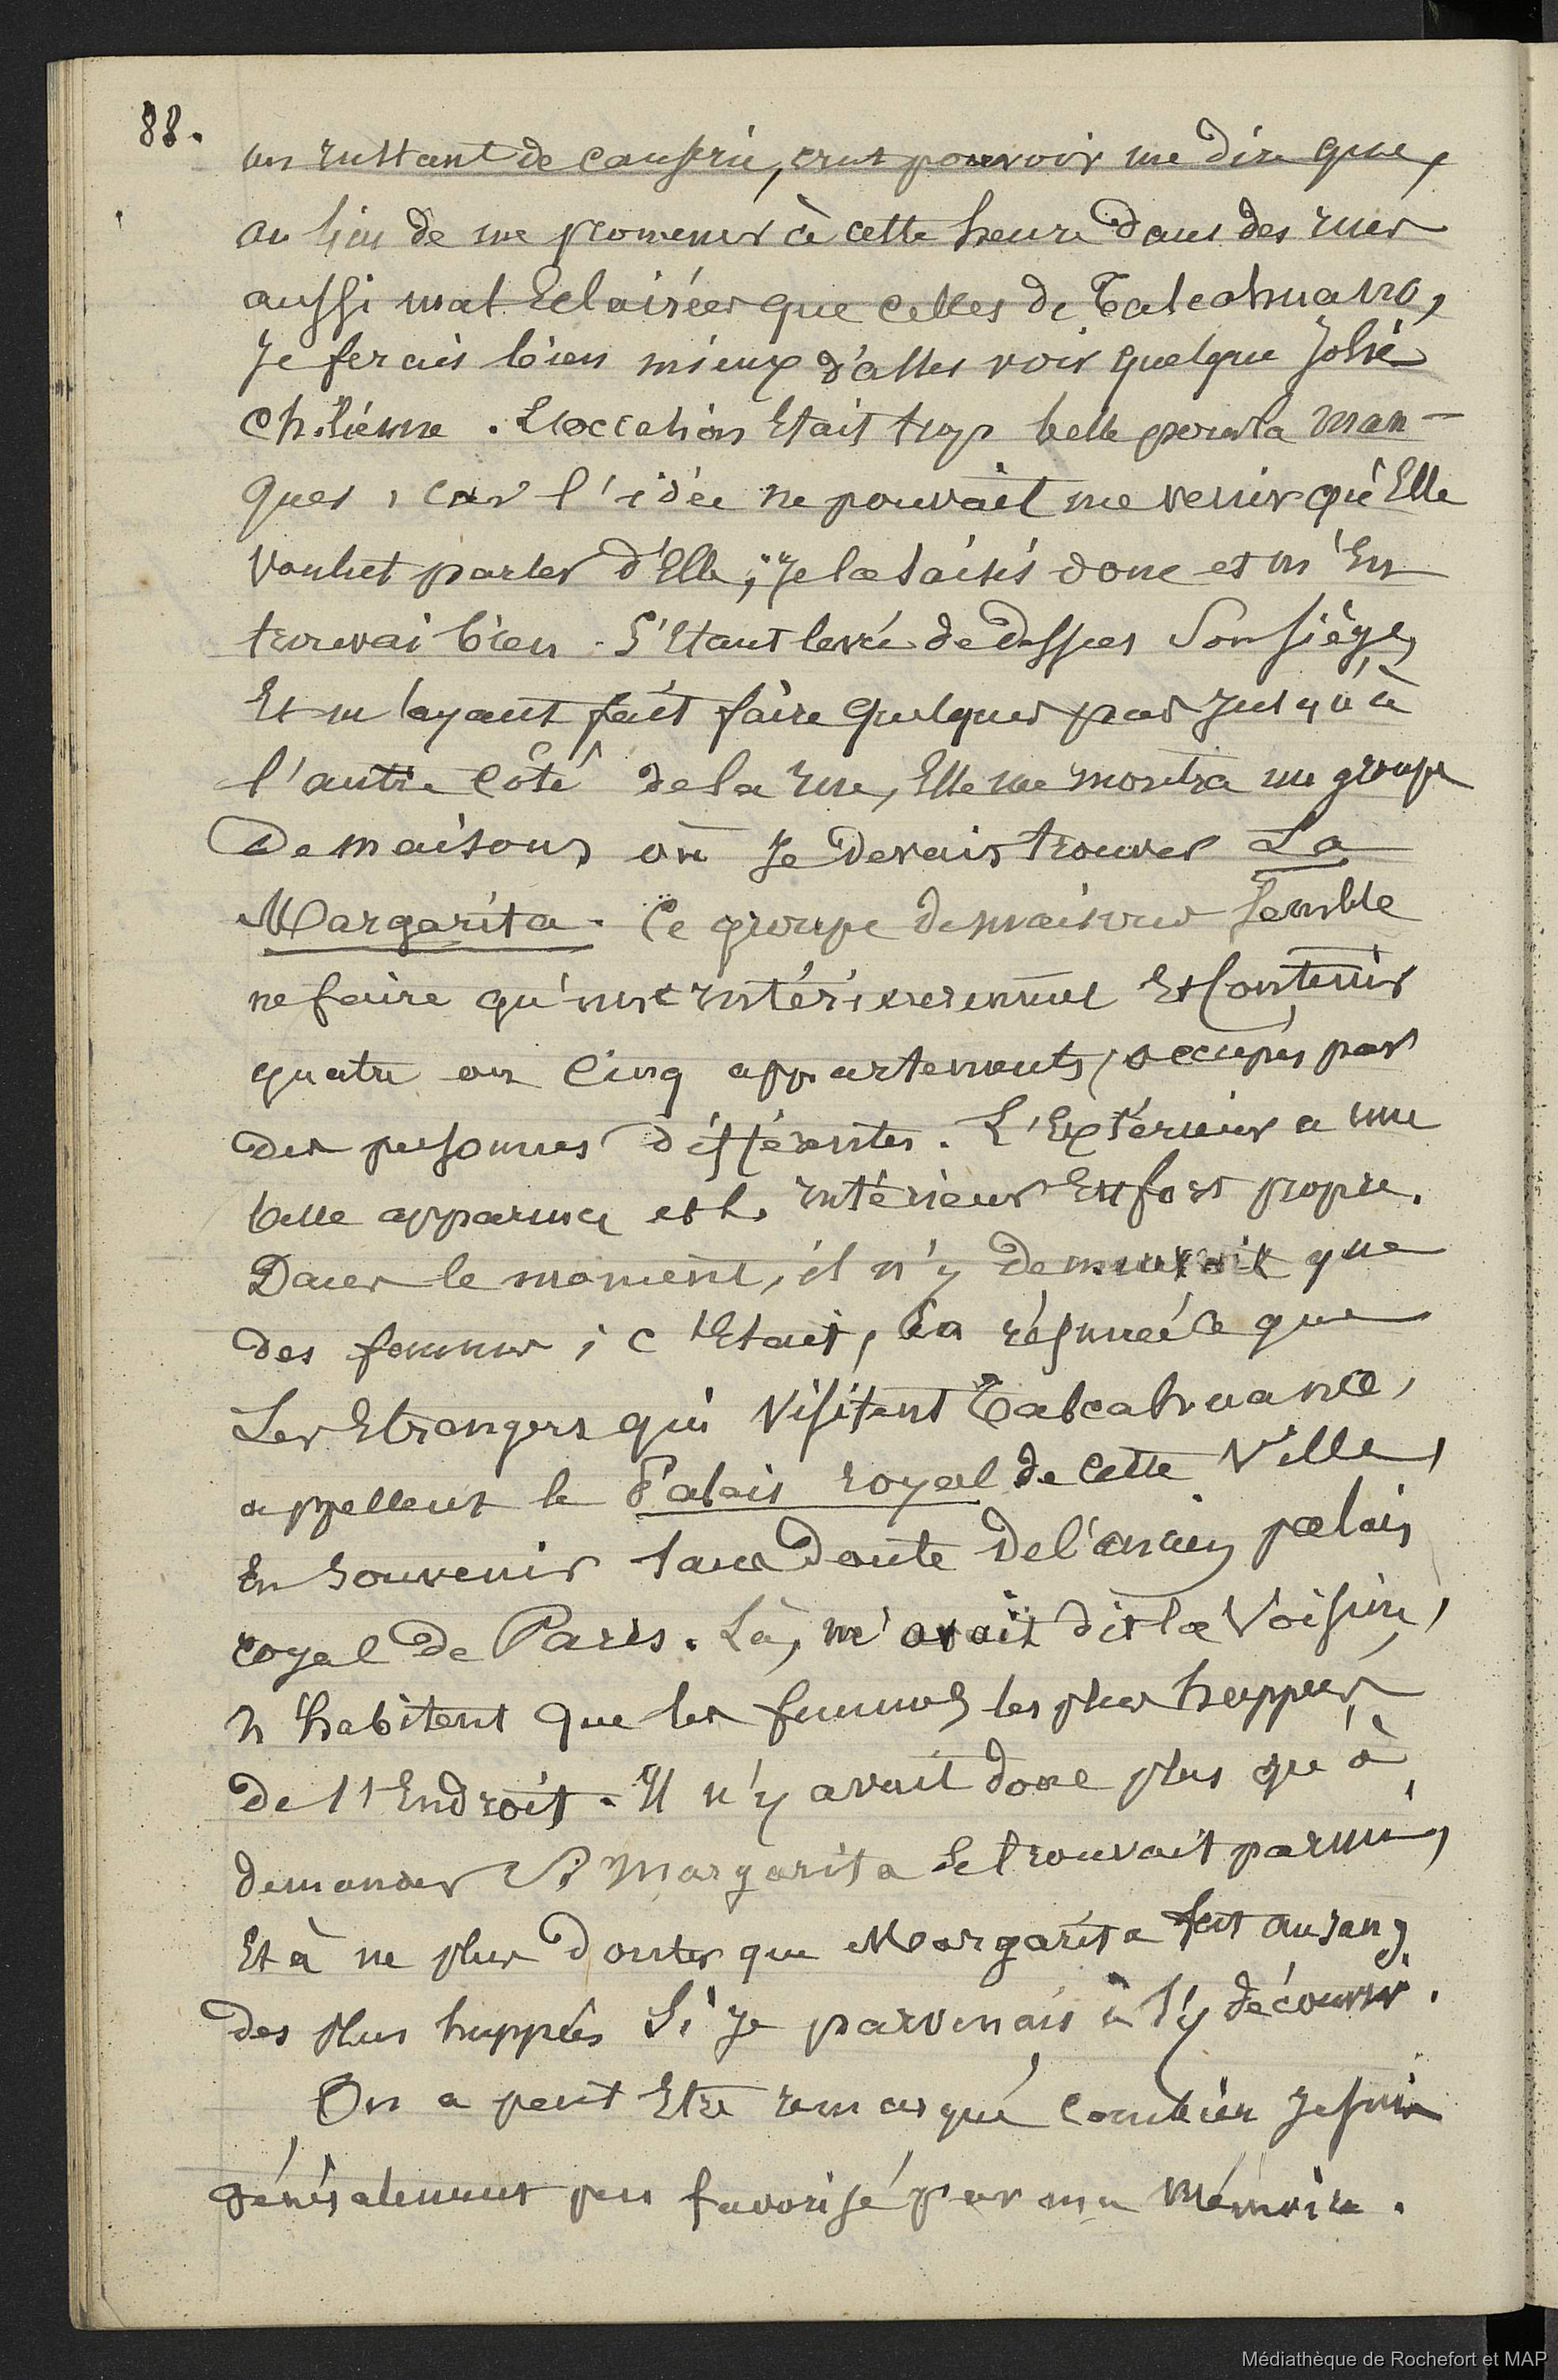 88.
un instant de causerie, crut pouvoir me dire que,
au lieu de me promener à cette heure dans des rues
aussi mal Eclairées que celles de Talcahuano,
Je ferais bien mieux d'aller voir quelque Jolie
Chilienne. L'occasion Etait trop belle pour la man-
quer, car l'idée ne pouvait me venir qu'Elle
voulut parler d'Elle; Je la saisis donc et m'En
trouvai bien. S'Etant levée de dessus son siège,
Et m'ayant fait faire quelques pas Jusqu'à
l'autre Côté de la rue, Elle me montra un groupe
De maisons où Je devais trouver La
Margarita. Ce groupe de maisons semble
ne faire qu'un intérieurement Et Contenir
quatre ou Cinq appartements, occupés par
des personnes différentes. L'Extérieur a une
belle apparence et l'intérieur Est fort propre.
Dans le moment, il n'y demeurait que
des femmes; c'Etait, en résumé ce que
Les Etrangers qui visitent Talcahuano,
appellent le Palais royal de cette Ville,
En souvenir sans Doute de l'ancien palais
royal de Paris. Là, m'avait dit la Voisine,
n'habitent que les femmes les plus huppées
de l'Endroit. Il n'y avait donc plus qu'à
demander Si Margarita se trouvait parmi,
Et à ne plus Douter que Margarita fut au rang
des plus huppées Si Je parvenais à l'y découvrir.
On a peut Etre remarqué Combien Je suis
généralement peu favorisé par ma mémoire.
Médiathèque de Rochefort et MAP